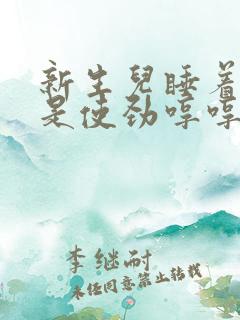 新生兒睡着
是使劲哼哼
李继耐
未经同意禁止转载